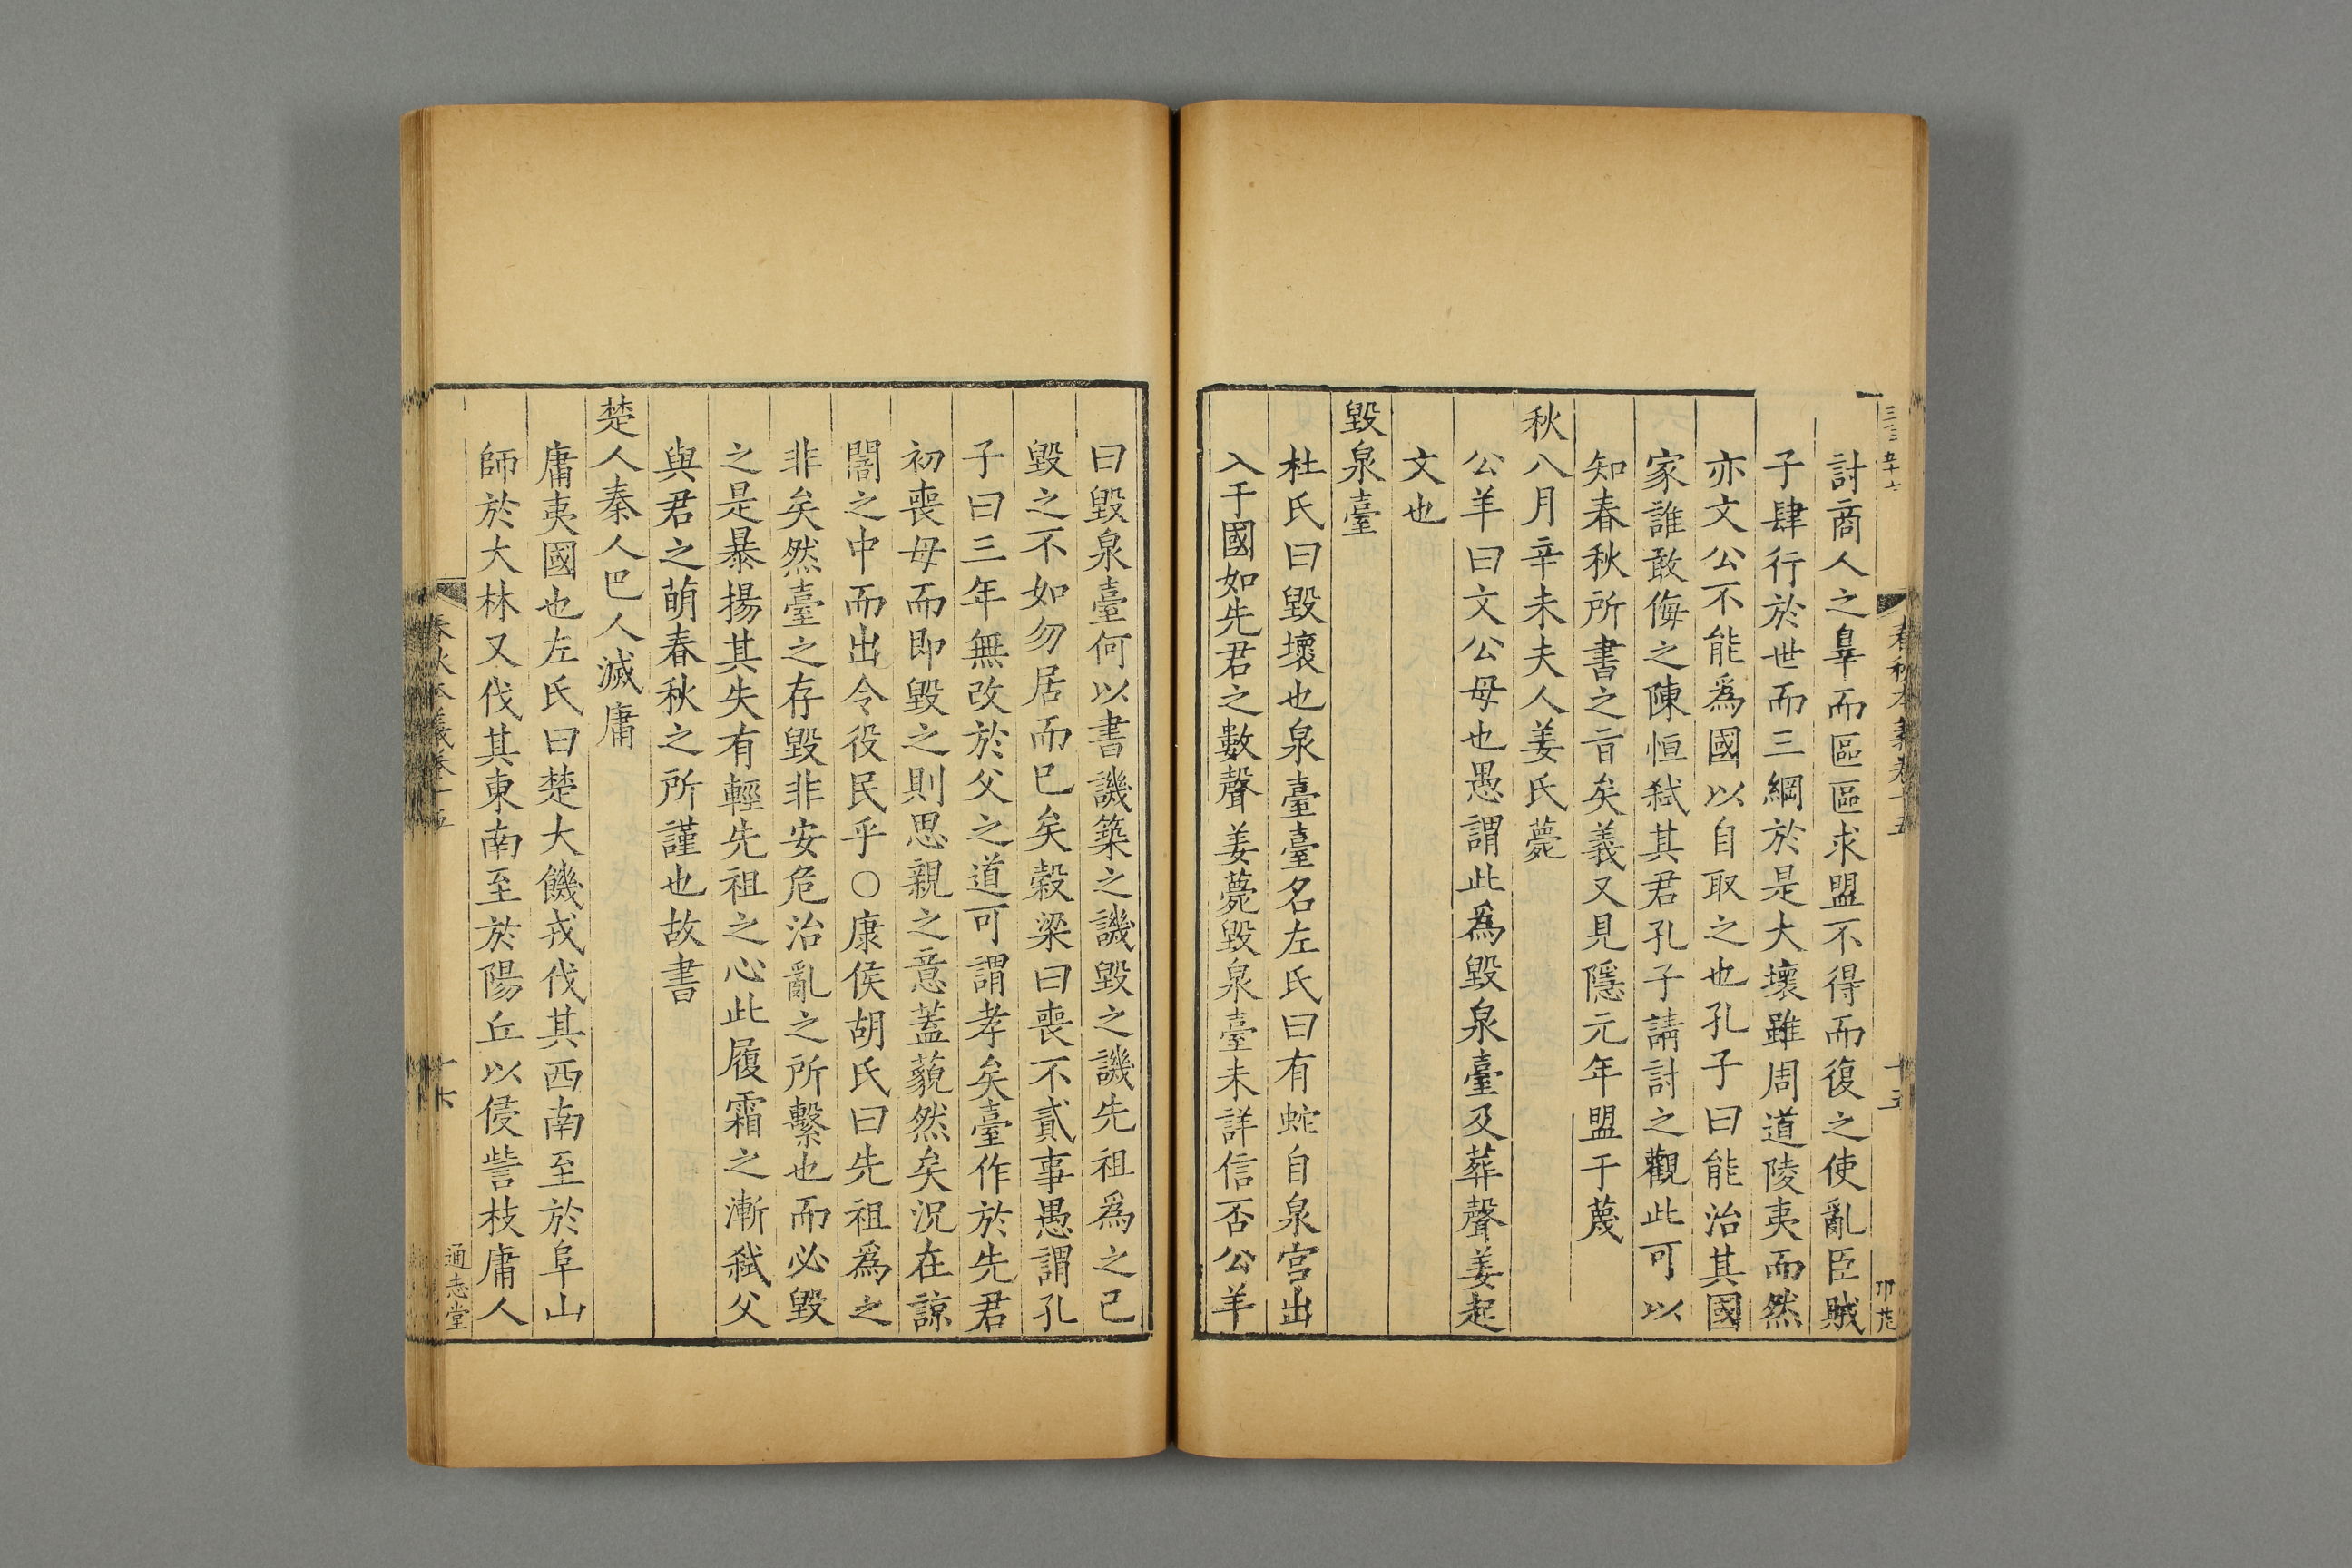 春秋本義卷十五
十五
討商人之辠而區區求盟不得而復之使亂臣賊
子肆行於世而三綱於是大壞雖周道陵夷而然
亦文公不能爲國以自取之也孔子曰能治其國
家誰敢侮之陳恒弑其君孔子請討之觀此可以
知春秋所書之旨矣義又見隱元年盟于蔑
秋八月辛未夫人姜氏薨
公羊曰文公母也愚謂此爲毀泉臺及葬聲姜起
文也
毀泉臺
杜氏曰毀壞也泉臺臺名左氏曰有蛇自泉宮出
入于國如先君之數聲姜薨毀泉臺未詳信否公羊
曰毀泉臺何以書譏築之譏毀之譏先祖爲之己
毀之不如勿居而已矣穀梁曰喪不貳事愚謂孔
子曰三年無改於父之道可謂孝矣臺作於先君
初喪母而即毀之則思親之意蓋藐然矣況在諒
闇之中而出令役民乎○康侯胡氏曰先祖爲之
非矣然臺之存毀非安危治亂之所繫也而必毀
之是暴揚其失有輕先祖之心此履霜之漸弑父
與君之萌春秋之所謹也故書
楚人秦人巴人滅庸
庸夷國也左氏曰楚大饑戎伐其西南至於阜山
師於大林又伐其東南至於陽丘以侵訾枝庸人
春秋本義卷十五
十六
通志堂